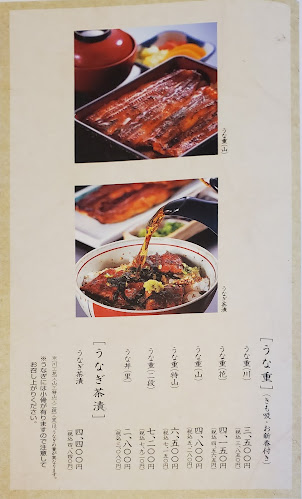 うな重(山)
うなぎ茶漬
[うな重](きも吸・お新香付き)
うな重(川) 三、五〇〇円
(税込三、八五〇円)
うな重(花) 四、一五〇円
うな重(山) 四、八〇〇円
(税込五、二八〇円)
うな重(特山) 六、五〇〇円
(税込七、一五〇円)
うな重(二段) 七、一〇〇円
(税込七、八一〇円)
うな丼(里) 二、八〇〇円
(税込三、〇八〇円)
[うなぎ茶漬]
うなぎ茶漬 四、四〇〇円
(税込四、八四〇円)
※うなぎには小骨が有りますので注意して
お召し上がりください。